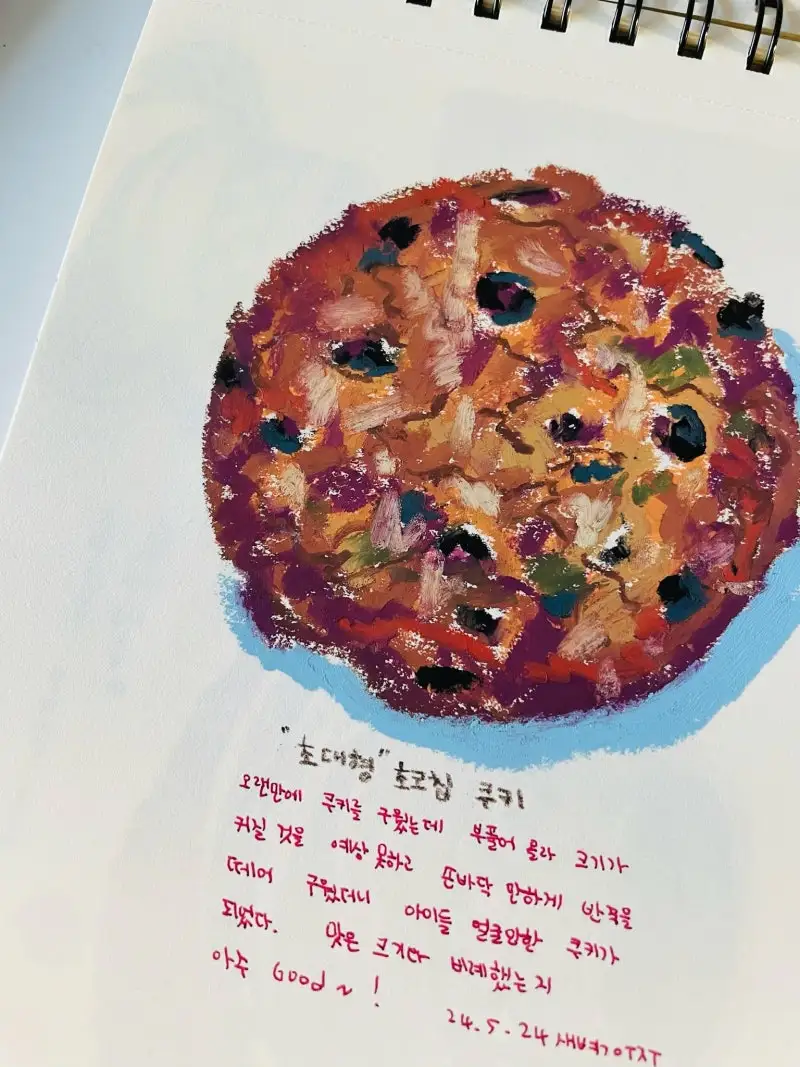 "초대형" 초코칩 쿠키
오랜만에 쿠키를 구웠는데 부풀어 올라 크기가
커질 것을 예상 못하고 손바닥 만하게 반죽을
떼어 구웠더니 아이들 얼굴만한 쿠키가
되었다. 맛은 크기와 비례했는지
아주 Good ~ !
24. 5. 24 새벽